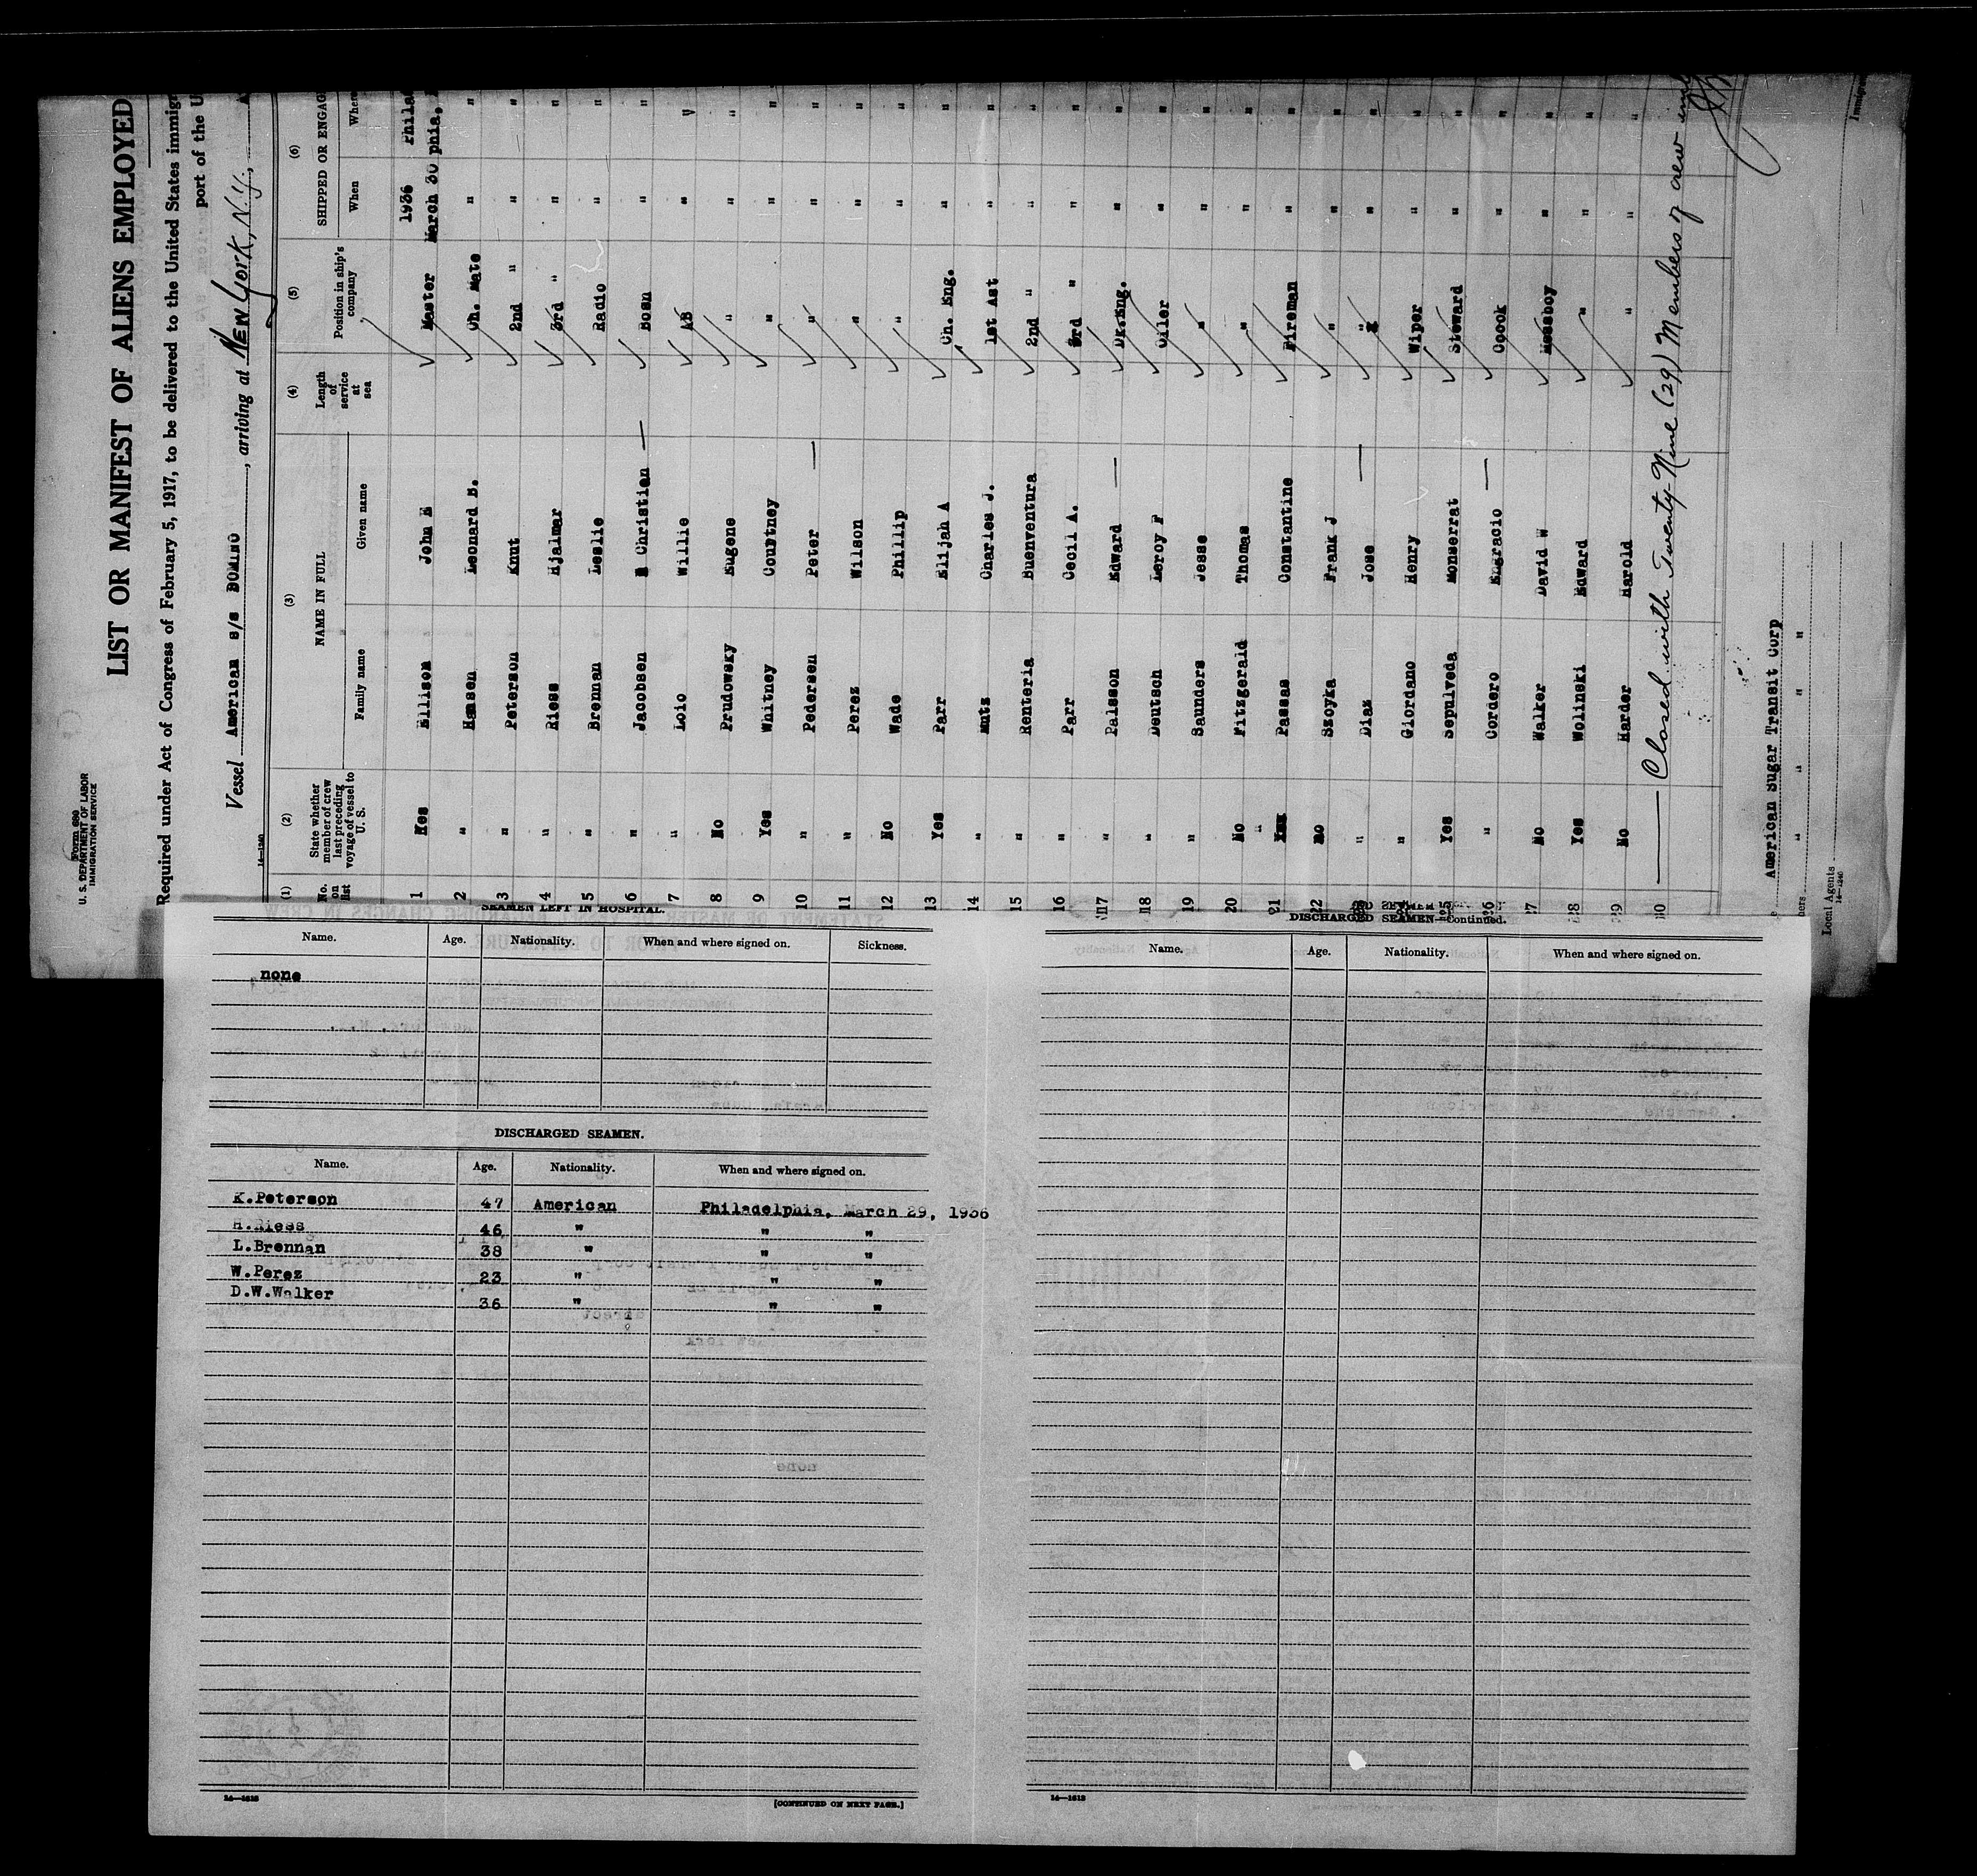 Form 680
U. S. DEPARTMENT OF LABOR
IMMIGRATION SERVICE
LIST OR MANIFEST OF ALIENS EMPLOYED
Required under Act of Congress of February 5, 1917, to be delivered to the United States immigr
port of the U
Vessel American s/s DOMINO, arriving at New York, N.Y.,
14—1240
(1) (2) (3) (4) (5) (6)
No. on list
State whether member of crew last preceding voyage of vessel to U. S.
NAME IN FULL
Family name Given name
Length of service at sea
Position in ship's company
SHIPPED OR ENGAG
When Where
1936 Philad
1 Yes Ellison John E Master March 30 phia,
2 " Hansen Leonard B. Ch. Mate " "
3 " Peterson Knut 2nd " " "
4 " Riess Hjalmar 3rd " " "
5 " Brennan Leslie Radio " "
6 " Jacobsen Christian — Bosn " "
7 " Loio Willie AB " "
8 No Prudowsky Eugene " " "
9 Yes Whitney Courtney " " "
10 " Pedersen Peter — " " "
11 " Perez Wilson " " "
12 No Wade Phillip " " "
13 Yes Parr Elijah A Ch. Eng. " "
14 " Mutz Charles J. 1st Ast " "
15 " Renteria Buenventura 2nd " " "
16 " Parr Cecil A. 3rd " " "
17 " Palsson Edward — Dk.Eng. " "
18 " Deutsch Leroy F Oiler " "
19 " Saunders Jesse " " "
20 No Fitzgerald Thomas " " "
21 " Passas Constantine Fireman " "
22 no Szoyka Frank J " " "
" Diaz Jose — " " "
" Giordano Henry Wiper " "
25 Yes Sepulveda Monserrat Steward " "
26 " Cordero Engracio — Coock " "
27 No Walker David W Messboy " "
28 Yes Wolinski Edward " " "
29 No Harder Harold " " "
30 — Closed with Twenty-Nine (29) Members of crew
American Sugar Transit Corp
" " " "
Local Agents
14—1240
Immigra
SEAMEN LEFT IN HOSPITAL.
Name. Age. Nationality. When and where signed on. Sickness.
none
DISCHARGED SEAMEN.
Name. Age. Nationality. When and where signed on.
K.Peterson 47 American Philadelphia, March 29, 1936
H.Riess 46 " " "
L.Brennan 38 " " "
W.Perez 23 " " "
D.W.Walker 36 " " "
14—1613
[CONTINUED ON NEXT PAGE.]
DISCHARGED SEAMEN—Continued.
Name. Age. Nationality. When and where signed on.
14—1613